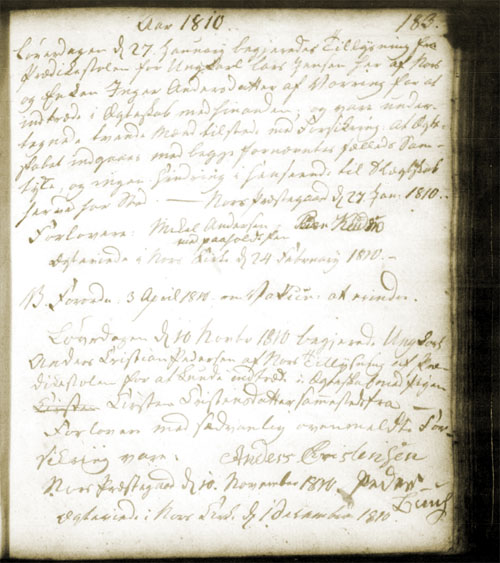 Aar 1810. 183.
Løverdagen d 27 Januarj begjeredes Tillysning fra
Prædikestolen for Ungkarl Lars Jensen her af Nors
og Enken Inger Andersdatter af Vorring for at
indtræde i Ægteskab med hinanden, og vare under-
tegnede tvende Mænd tilstede med Forsikring at Ægte-
skabet indgaaes med begge fornævntes fælleds Sam-
tykke, og ingen Hindring i Henseende til Slægtskab
herved har Sted. — Nors Præstegaard d 27 Jan: 1810.
Forlovere: Mikel Andersen
med paaholdt Pen
Ægteviede i Nors Kirke d 24 Februarij 1810. —
NB. Forordn: 3 April 1810. om Vaccin: at erindre.
Løverdagen d 10 Novbr 1810 begjerede Ungkarl
Anders Christian Pedersen af Nors Tillysning fra Præ-
dikestolen for at kunde indtræde i Ægteskab med Pigen
Kirsten Kirsten Christensdatter sammestedsfra —
Forlovere med sædvanlig ovenmeldte For-
sikring vare: Anders Christensen
Nors Præstegaard d 10. November 1810. Peder
Ægteviede i Nors Kirke d 1 December 1810